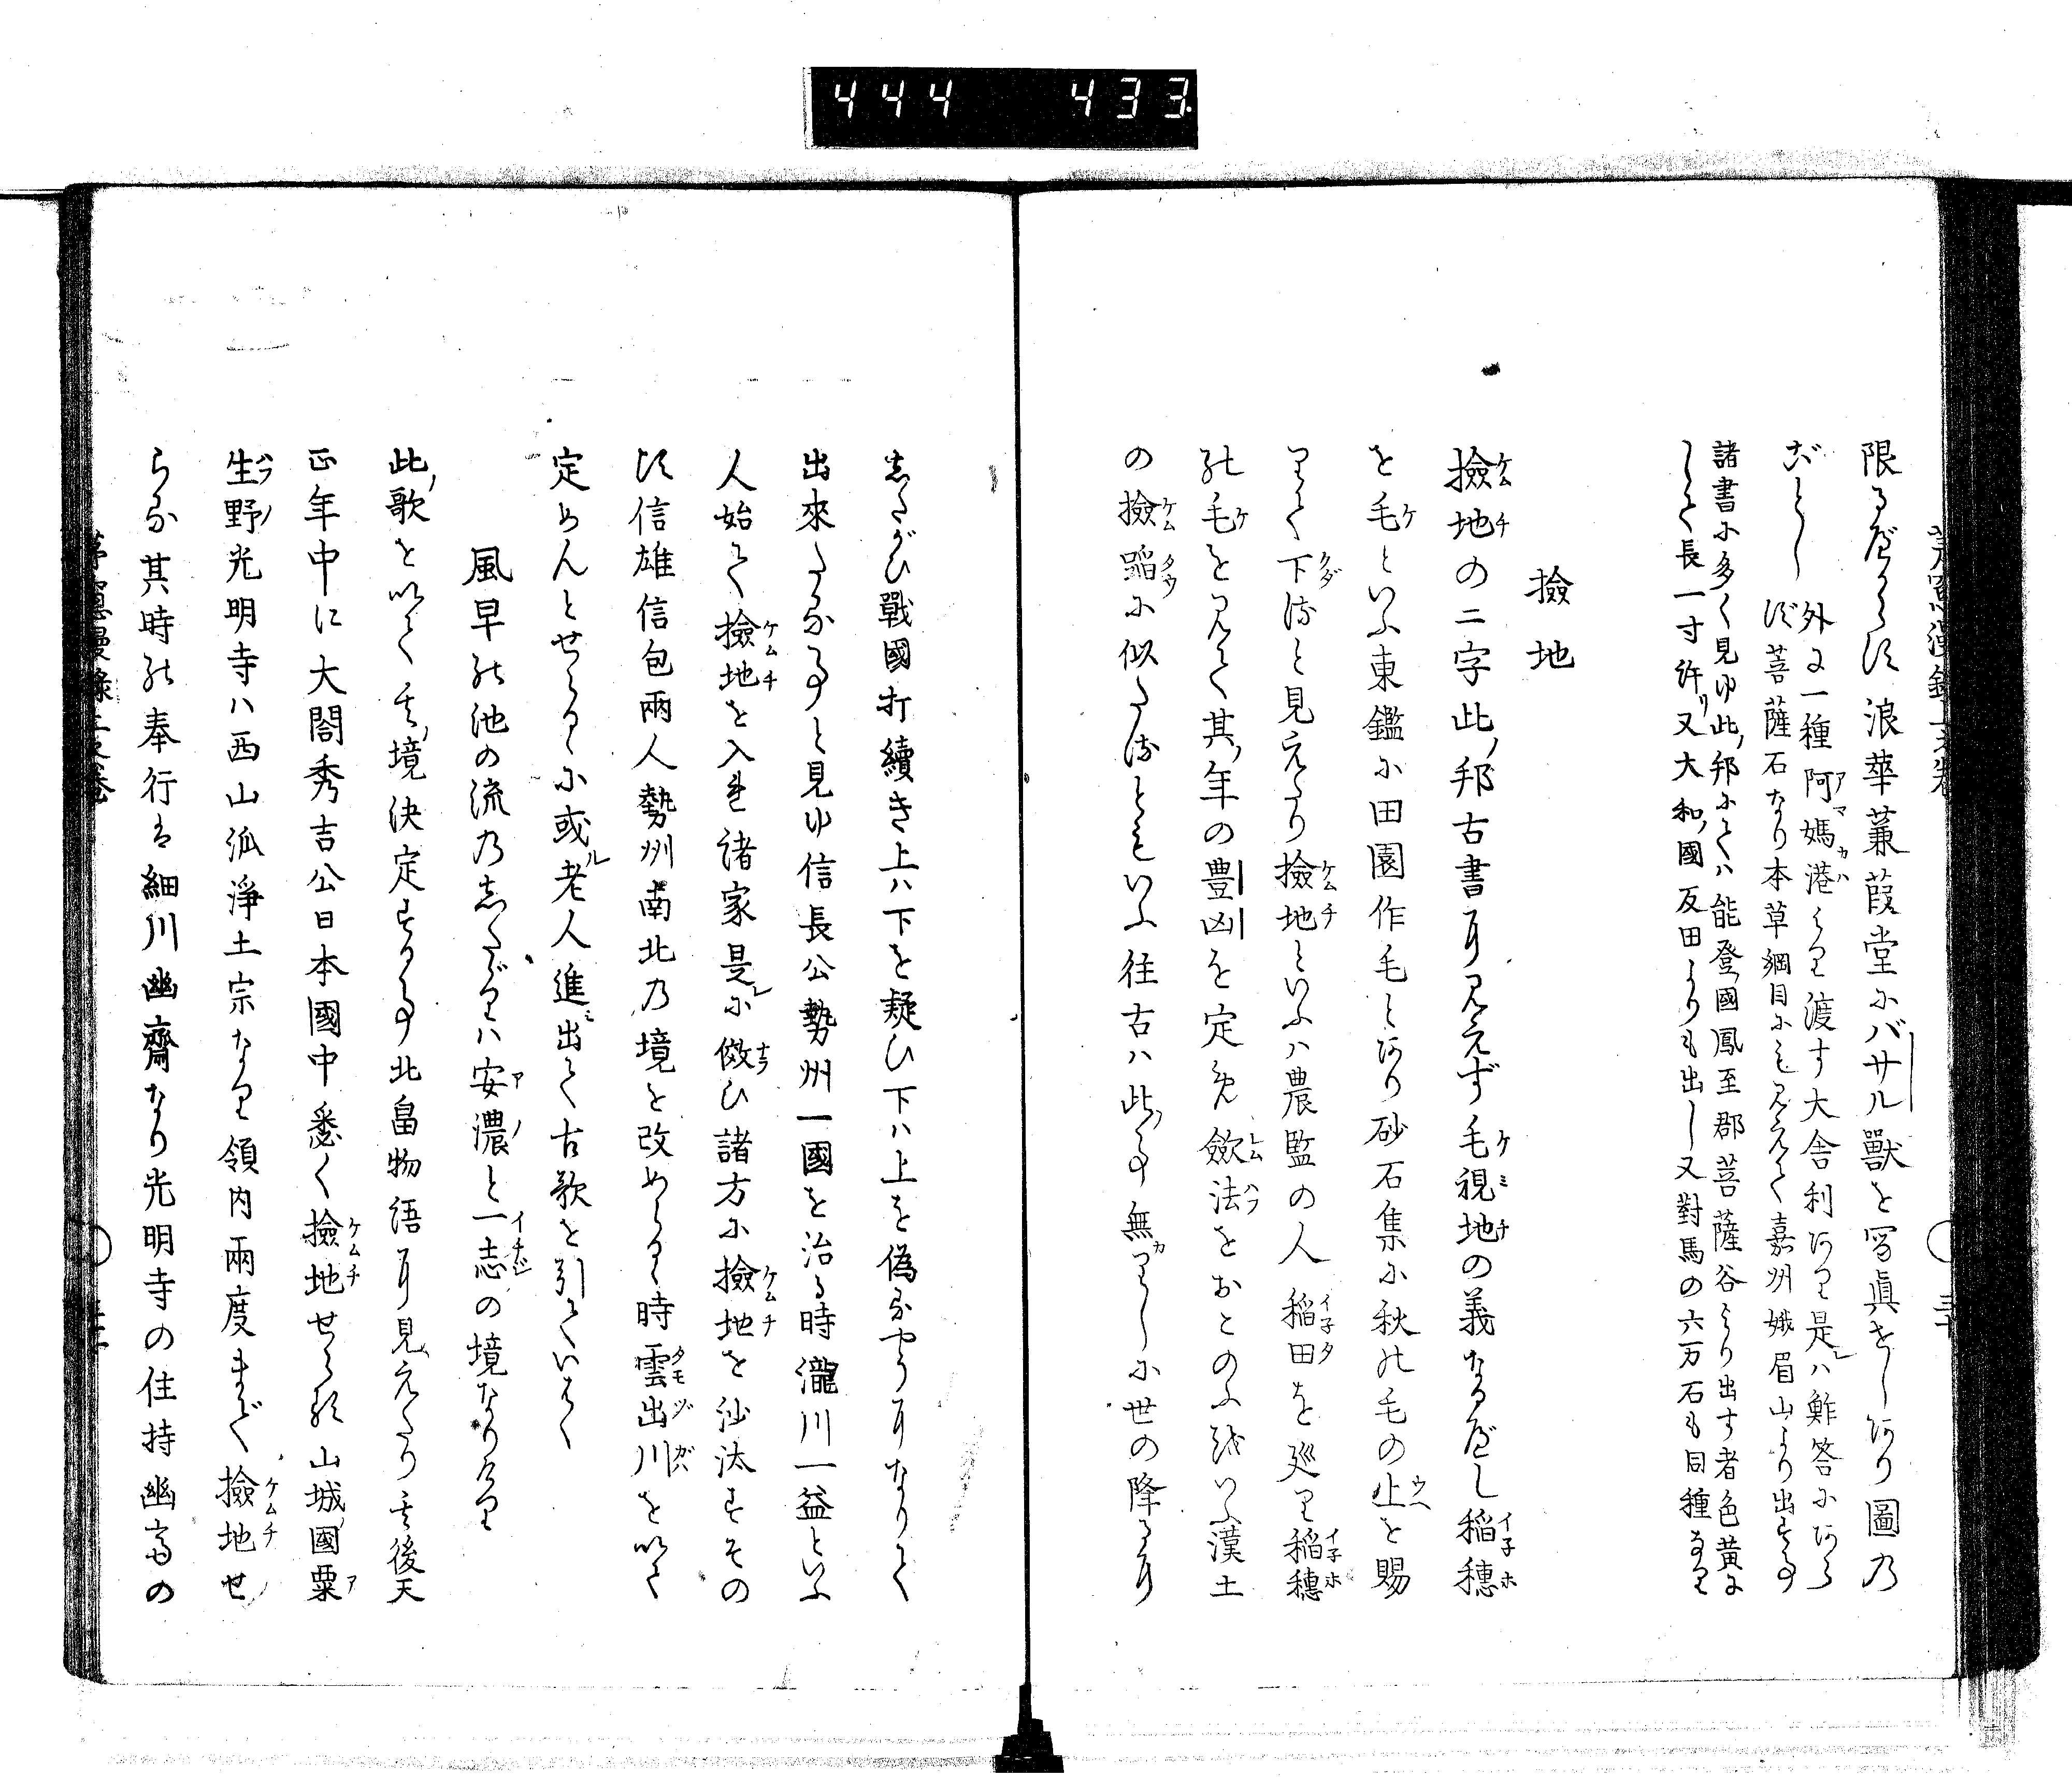 444 433
限るべからす浪華蒹葭堂にバサル獸を冩眞せしあり圖乃
ごとし
外に一種阿媽港より渡す大舎利あり是ハ鮓荅にあら
ず菩薩石なり本草綱目にも見えて嘉州娥眉山より出る事
諸書に多く見ゆ此邦にてハ能登國鳳至郡菩薩谷より出す者色黄に
して長一寸許又大和國反田よりも出し又對馬の六万石も同種なり
撿地
撿地の二字此邦古書に見えず毛視地の義なるべし稲穂
を毛といふ東鑑に田園作毛とあり砂石集に秋の毛の上を賜
りて下ると見えたり撿地といふハ農監の人稲田を廵り稲穂
の毛を見て其年の豊凶を定め斂法をおとのふ故いふ漢土
の撿蹈に似たるともいふ往古ハ此事無りしに世の降るに
したがひ戰國打續き上ハ下を疑ひ下ハ上を偽るやうになりて
出來たる事と見ゆ信長公勢州一國を治る時瀧川一益といふ
人始て撿地を入れ諸家是に倣ひ諸方に撿地を沙汰すその
後信雄信包兩人勢州南北乃境を改めらる時雲出川を以て
定めんとせらるゝに或老人進出て古歌を引ていはく
風早の池の流乃したゞりハ安濃と一志の境なりけり
此歌を以て其境決定する事北畠物語に見えたり其後天
正年中に大閤秀吉公日本國中悉く撿地せらる山城國粟
生野光明寺ハ西山派淨土宗なり領内兩度まで撿地せ
らる其時の奉行は細川幽齋なり光明寺の住持幽斎の